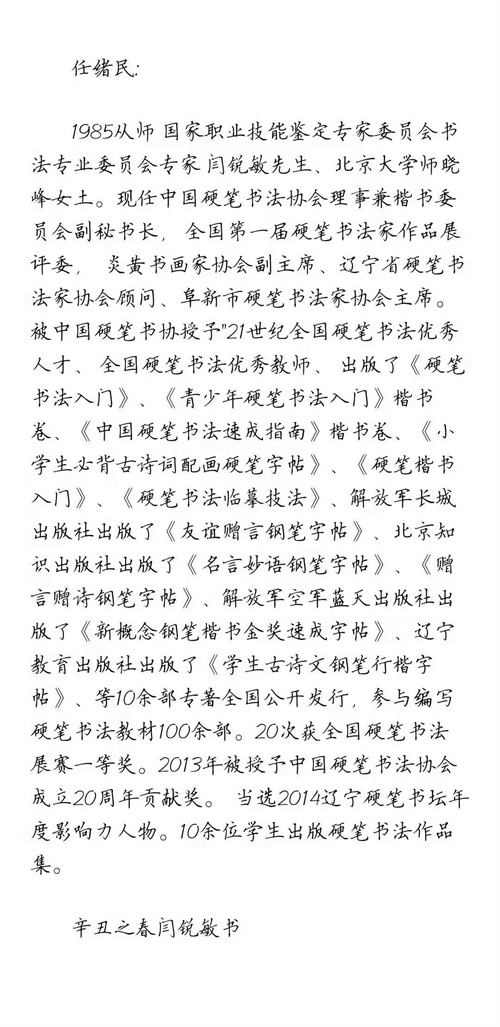 任绪民:
1985从师 国家职业技能鉴定专家委员会书
法专业委员会专家 闫锐敏先生、北京大学师晓
峰女士。现任中国硬笔书法协会理事兼楷书委
员会副秘书长， 全国第一届硬笔书法家作品展
评委， 炎黄书画家协会副主席、辽宁省硬笔书
法家协会顾问、阜新市硬笔书法家协会主席。
被中国硬笔书协授予"21世纪全国硬笔书法优秀
人才、 全国硬笔书法优秀教师、 出版了《硬笔
书法入门》、《青少年硬笔书法入门》楷书
卷、《中国硬笔书法速成指南》楷书卷、《小
学生必背古诗词配画硬笔字帖》、《硬笔楷书
入门》、《硬笔书法临摹技法》、解放军长城
出版社出版了《友谊赠言钢笔字帖》、北京知
识出版社出版了《名言妙语钢笔字帖》、《赠
言赠诗钢笔字帖》、解放军空军蓝天出版社出
版了《新概念钢笔楷书金奖速成字帖》、辽宁
教育出版社出版了《学生古诗文钢笔行楷字
帖》、等10余部专著全国公开发行，参与编写
硬笔书法教材100余部。20次获全国硬笔书法
展赛一等奖。2013年被授予中国硬笔书法协会
成立20周年贡献奖。 当选2014辽宁硬笔书坛年
度影响力人物。10余位学生出版硬笔书法作品
集。
辛丑之春闫锐敏书